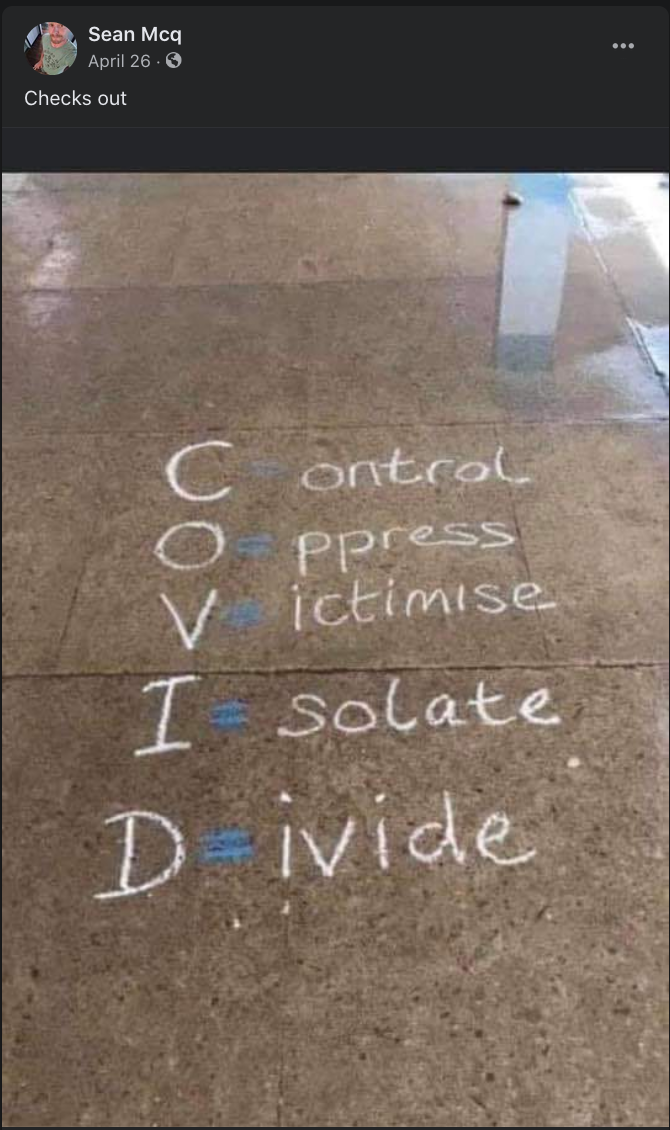 Sean Mcq
April 26 ·
Checks out
C = ontrol
O = ppress
V = ictimise
I = solate
D = ivide